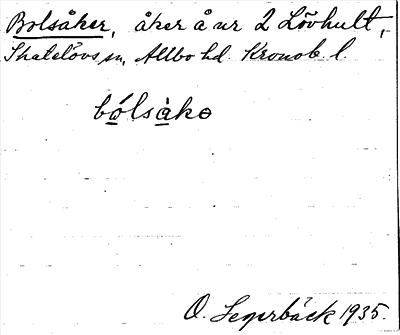 Bolsåker, åker å nr 2 Lövhult,
Skatelövs sn, Allbo hd. Kronob l.
bólsàkɵ
O. Segerbäck 1935.